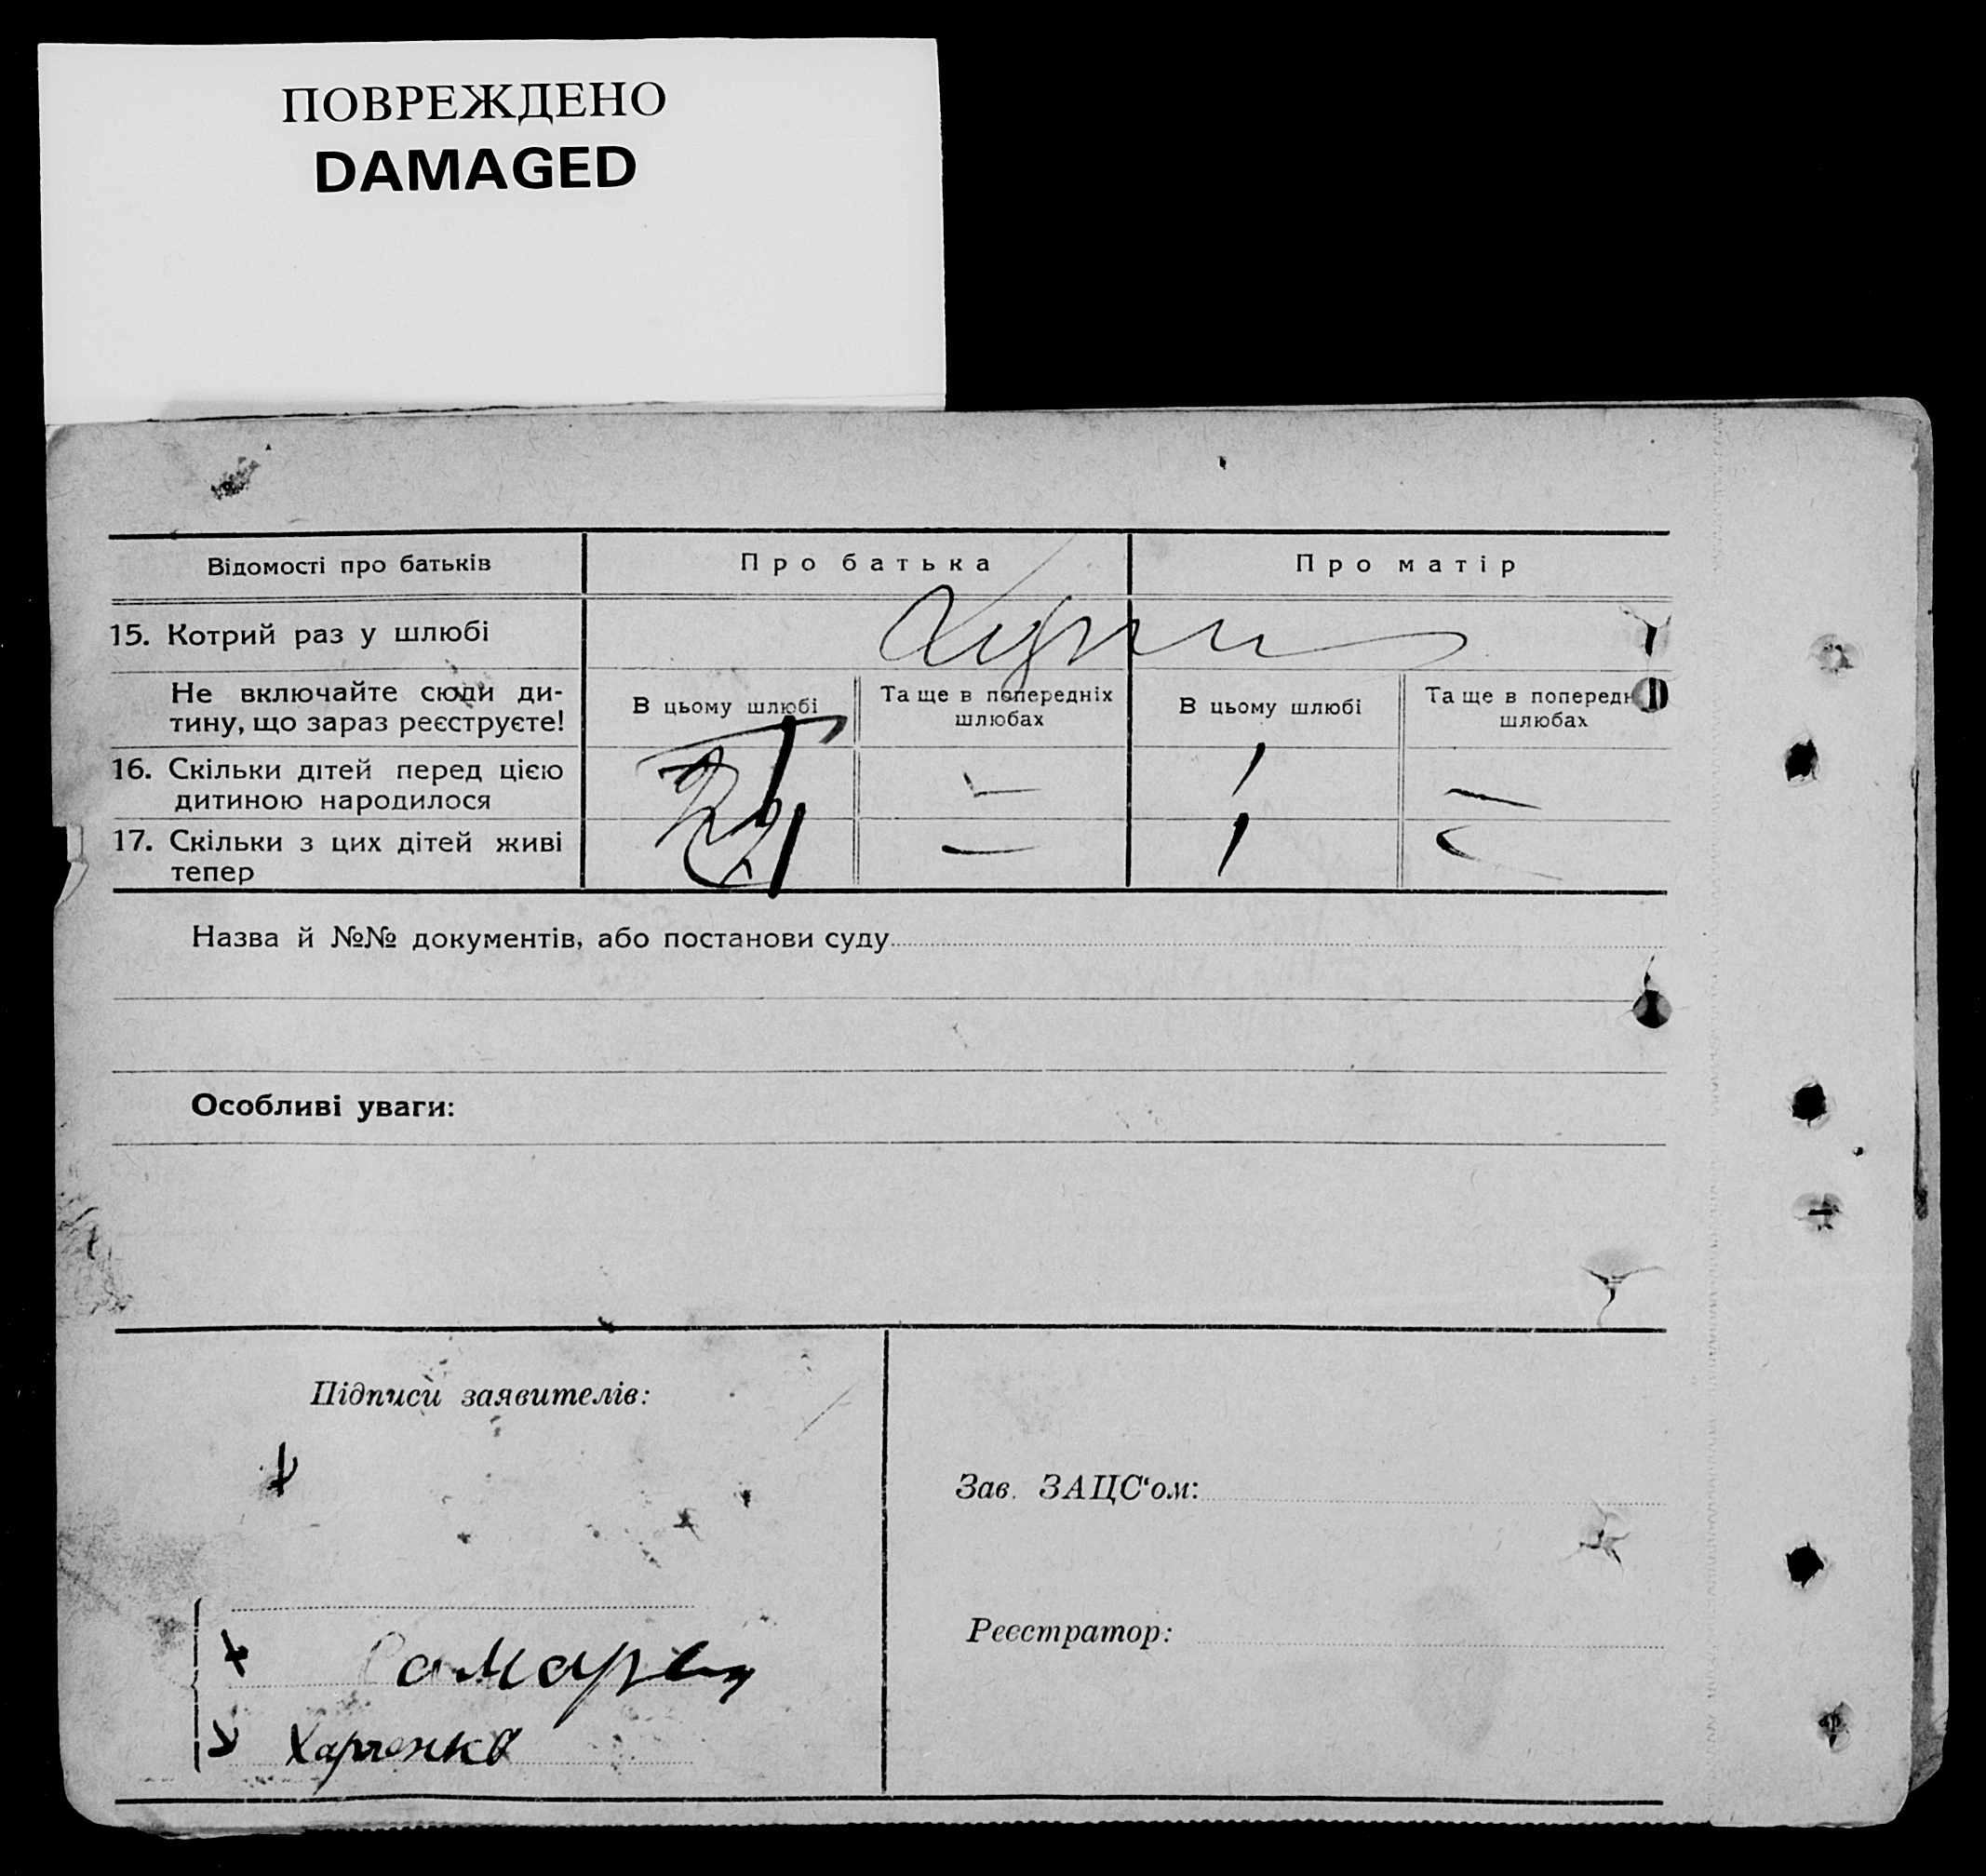 ПОВРЕЖДЕНО
DAMAGED
Відомості про батьків
Про батька
Про матір
15. Котрий раз у шлюбі
Не включайте сюди ди-
тину, що зараз реєструєте!
В цьому шлюбі
Та ще в попередніх
шлюбах
В цьому шлюбі
Та ще в
шлюбах
16. Скільки дітей перед цією
дитиною народилося
1
17. Скільки з цих дітей живі
тепер
1
1
Назва й №№ документів, або постанови суду
Особливі уваги:
Підписи заявителів:
Зав. ЗАЦС‘ом:
Реєстратор:
Харченко